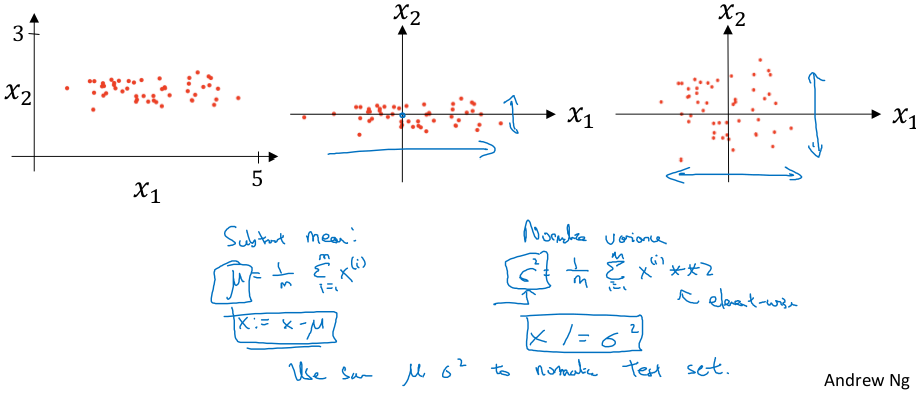 3
x₂
x₁
5
x₂
x₁
x₂
x₁
Subtract mean:
μ = 1/m Σᵢ₌₁ᵐ x⁽ⁱ⁾
x := x - μ
Normalize variance
σ² = 1/m Σᵢ₌₁ᵐ x⁽ⁱ⁾ **2
element-wise
x /= σ²
Use same μ σ² to normalize test set.
Andrew Ng